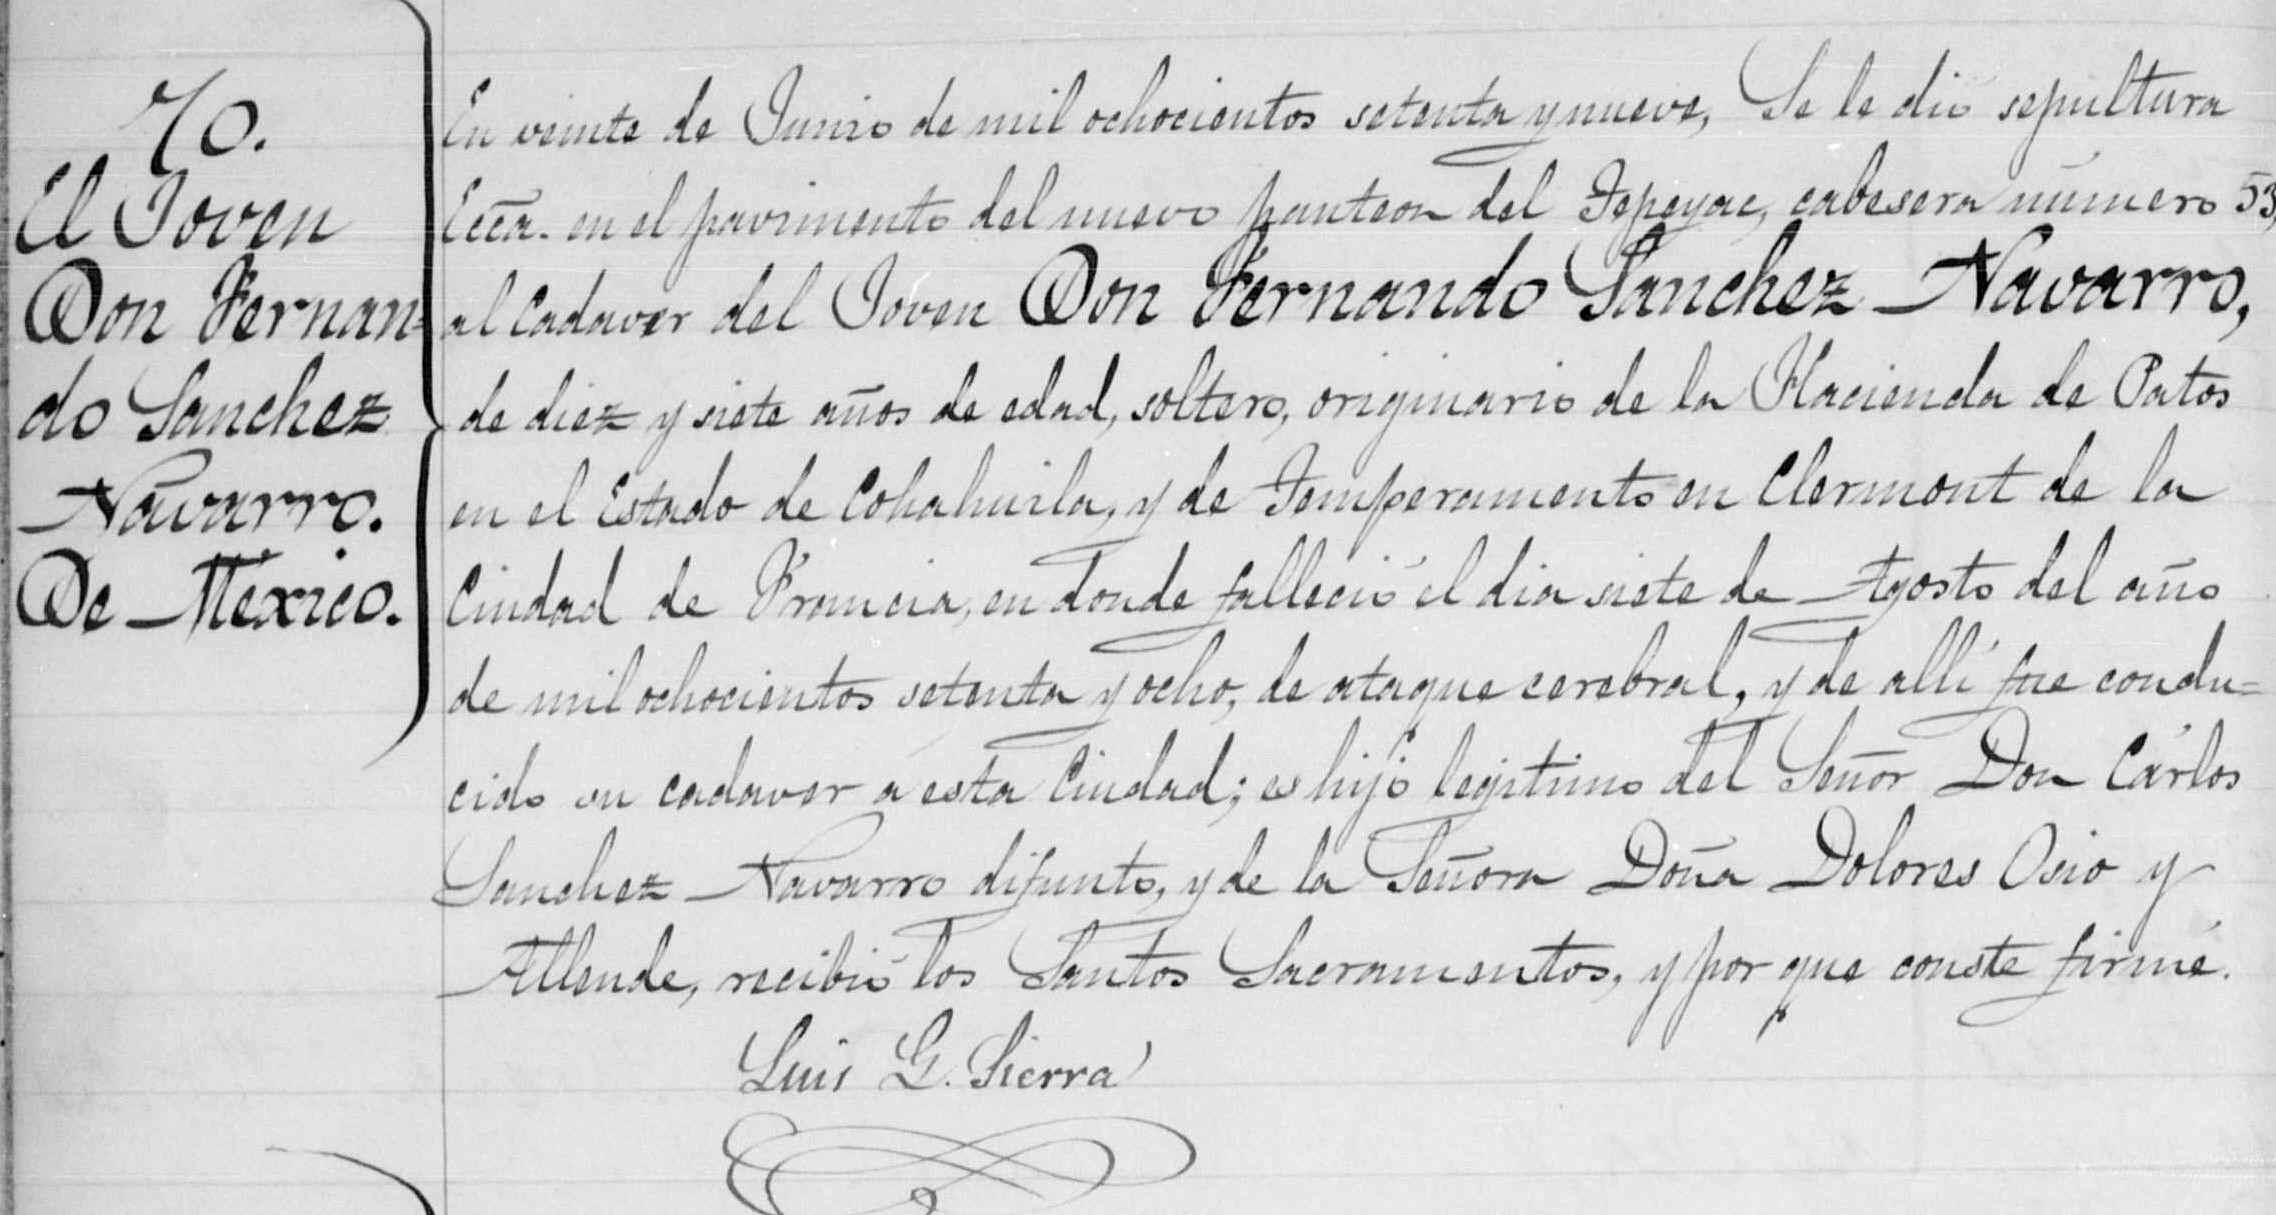 70.
El Joven
Don Fernan=
do Sanchez
Navarro.
De México.
En veinte de Junio de mil ochocientos setenta y nueve, Se le dió sepultura
Ecca. en el pavimento del nuevo panteon del Tepeyac, cabesera número 53,
al Cadaver del Joven Don Fernando Sanchez Navarro,
de diez y siete años de edad, soltero, originario de la Hacienda de Patos
en el Estado de Cohahuila, y de Temperamento en Clermont de la
Ciudad de Francia, en donde falleció el dia siete de Agosto del año
de mil ochocientos setenta y ocho, de ataque cerebral, y de allí fue condu=
cido su cadaver á esta Ciudad; es hijo legitimo del Señor Don Cárlos
Sanchez Navarro difunto, y de la Señora Doña Dolores Osio y
Allende, recibió los Santos Sacramentos, y por que conste firmé.
Luis G. Sierra